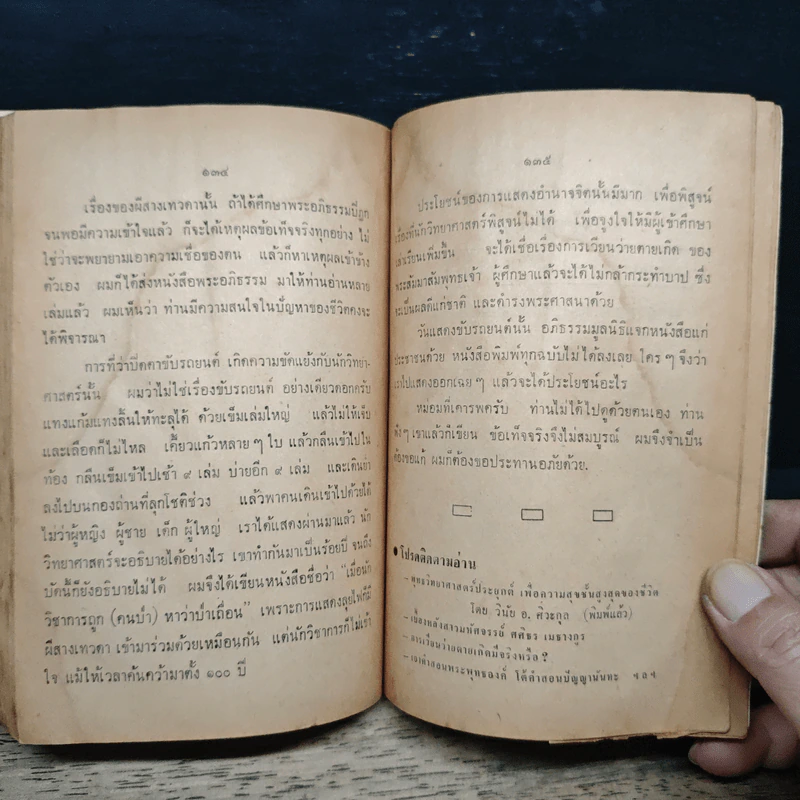 ๑๓๔
เรื่องของผีสางเทวดานั้น ถ้าได้ศึกษาพระอภิธรรมปิฎก
จนพอมีความเข้าใจแล้ว ก็จะได้เหตุผลข้อเท็จจริงทุกอย่าง ไม่
ใช่ว่าจะพยายามเอาความเชื่อของตน แล้วก็หาเหตุผลเข้าข้าง
ตัวเอง ผมก็ได้ส่งหนังสือพระอภิธรรม มาให้ท่านอ่านหลาย
เล่มแล้ว ผมเห็นว่า ท่านมีความสนใจในปัญหาของชีวิตคงจะ
ได้พิจารณา
การที่ว่าปิดตาขับรถยนต์ เกิดความขัดแย้งกับนักวิทยา-
ศาสตร์นั้น ผมว่าไม่ใช่เรื่องขับรถยนต์ อย่างเดียวดอกครับ
แทงแก้มแทงลิ้นให้ทะลุได้ ด้วยเข็มเล่มใหญ่ แล้วไม่ให้เจ็บ
และเลือดก็ไม่ไหล เคี้ยวแก้วหลาย ๆ ใบ แล้วกลืนเข้าไปใน
ท้อง กลืนเข็มเข้าไปเช้า ๙ เล่ม บ่ายอีก ๙ เล่ม และเดินย่ำ
ลงไปบนกองถ่านที่ลุกโชติช่วง แล้วพาคนเดินเข้าไปด้วยได้
ไม่ว่าผู้หญิง ผู้ชาย เด็ก ผู้ใหญ่ เราได้แสดงผ่านมาแล้ว นัก
วิทยาศาสตร์จะอธิบายได้อย่างไร เขาทำกันมาเป็นร้อยปี จนถึง
บัดนี้ก็ยังอธิบายไม่ได้ ผมจึงได้เขียนหนังสือชื่อว่า "เมื่อนัก
วิชาการถูก (คนบ้า) หาว่าบ้าเถื่อน" เพราะการแสดงลุยไฟก็มี
ผีสางเทวดา เข้ามาร่วมด้วยเหมือนกัน แต่นักวิชาการก็ไม่เข้า
ใจ แม้ให้เวลาค้นคว้ามาตั้ง ๑๐๐ ปี
๑๓๕
ประโยชน์ของการแสดงอำนาจจิตนั้นมีมาก เพื่อพิสูจน์
เรื่องที่นักวิทยาศาสตร์พิสูจน์ไม่ได้ เพื่อจูงใจให้มีผู้เข้าศึกษา
เล่าเรียนเพิ่มขึ้น จะได้เชื่อเรื่องการเวียนว่ายตายเกิด ของ
พระสัมมาสัมพุทธเจ้า ผู้ศึกษาแล้วจะได้ไม่กล้ากระทำบาป ซึ่ง
จะเป็นผลดีแก่ชาติ และดำรงพระศาสนาด้วย
วันแสดงขับรถยนต์นั้น อภิธรรมมูลนิธิแจกหนังสือแก่
ประชาชนด้วย หนังสือพิมพ์ทุกฉบับไม่ได้ลงเลย ใคร ๆ จึงว่า
เราไปแสดงออกเฉย ๆ แล้วจะได้ประโยชน์อะไร
หม่อมที่เคารพครับ ท่านไม่ได้ไปดูด้วยตนเอง ท่าน
ฟัง ๆ เขาแล้วก็เขียน ข้อเท็จจริงจึงไม่สมบูรณ์ ผมจึงจำเป็น
ต้องขอแก้ ผมก็ต้องขอประทานอภัยด้วย.
● โปรดติดตามอ่าน
– พุทธวิทยาศาสตร์ประยุกต์ เพื่อความสุขขั้นสูงสุดของชีวิต
โดย วินัย อ. ศิวะกุล (พิมพ์แล้ว)
– เบื้องหลังสาวมหัศจรรย์ ศศิธร เมธางกูร
– การเวียนว่ายตายเกิดมีจริงหรือ ?
– เขาคำสอนพระพุทธองค์ โต้คำสอนปัญญานันทะ ฯลฯ